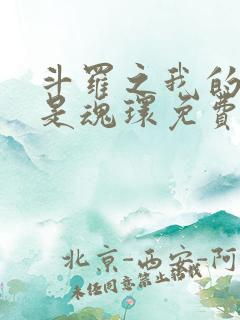 斗羅之我的
是魂環免費
北京-西安-阿
未经同意禁止转载